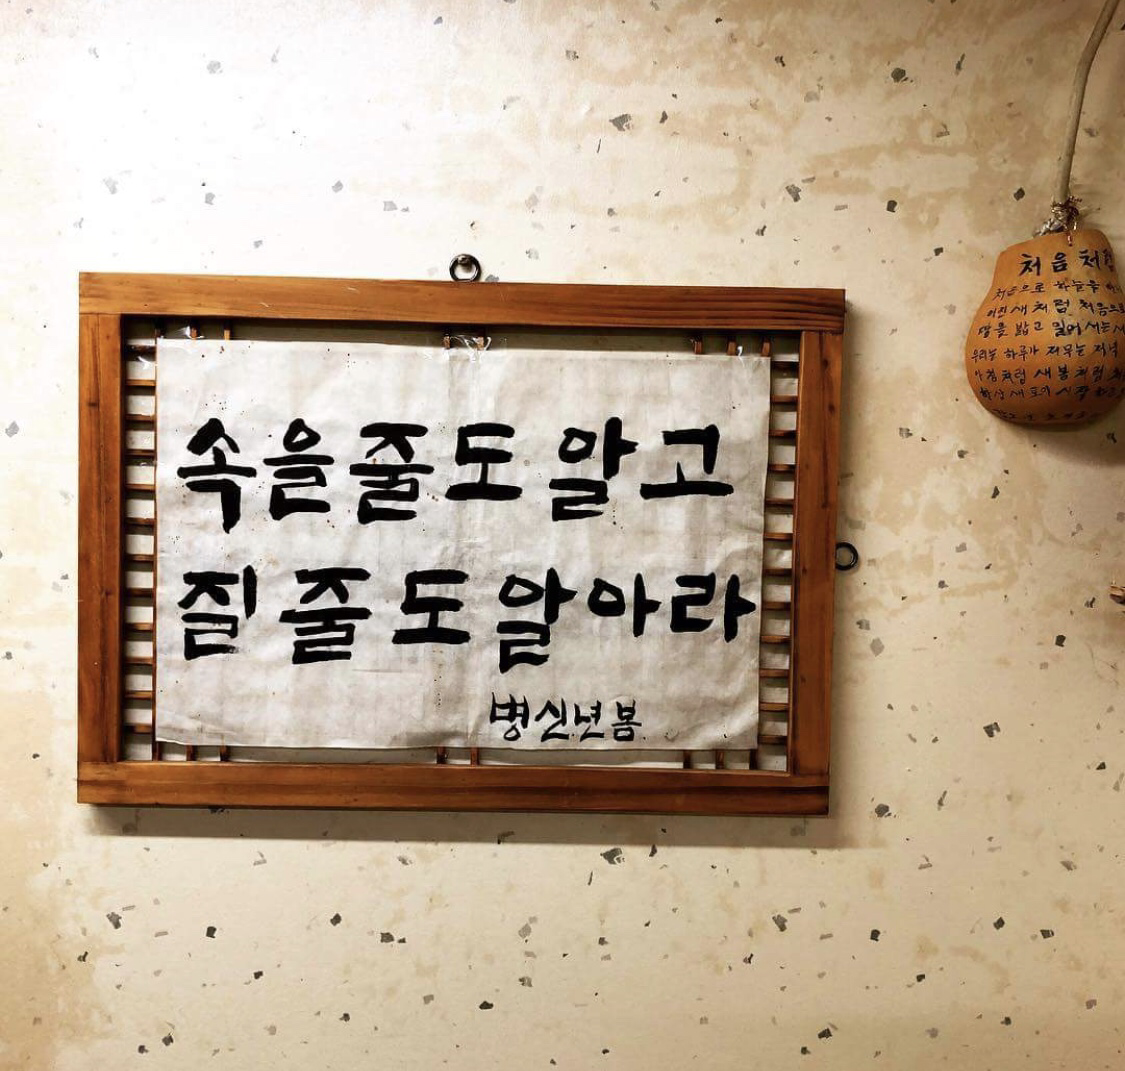 속을줄도알고
질줄도알아라
병신년봄
처음처럼
처음으로 하늘을
어린 새처럼 처음으로
땅을 밟고 일어서는 새
우리는 하루가 저무는 저녁
아침처럼 새봄처럼 처
항상 새로이 시작하고